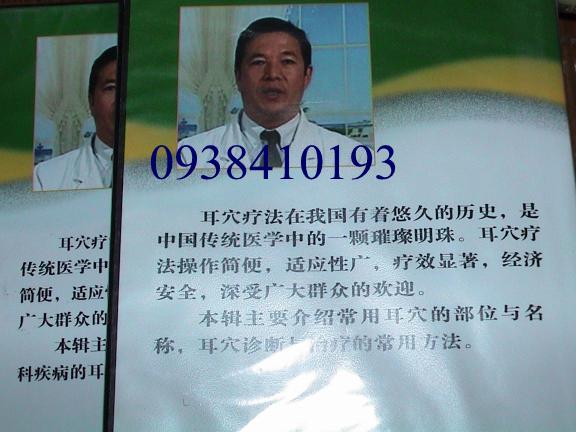 0938410193
耳穴疗法在我国有着悠久的历史，是
中国传统医学中的一颗璀璨明珠。耳穴疗
法操作简便，适应性广，疗效显著，经济
安全，深受广大群众的欢迎。
本辑主要介绍常用耳穴的部位与名
称，耳穴诊断与治疗的常用方法。
耳穴疗
传统医学中
简便，适应性
广大群众的
本辑主
科疾病的耳